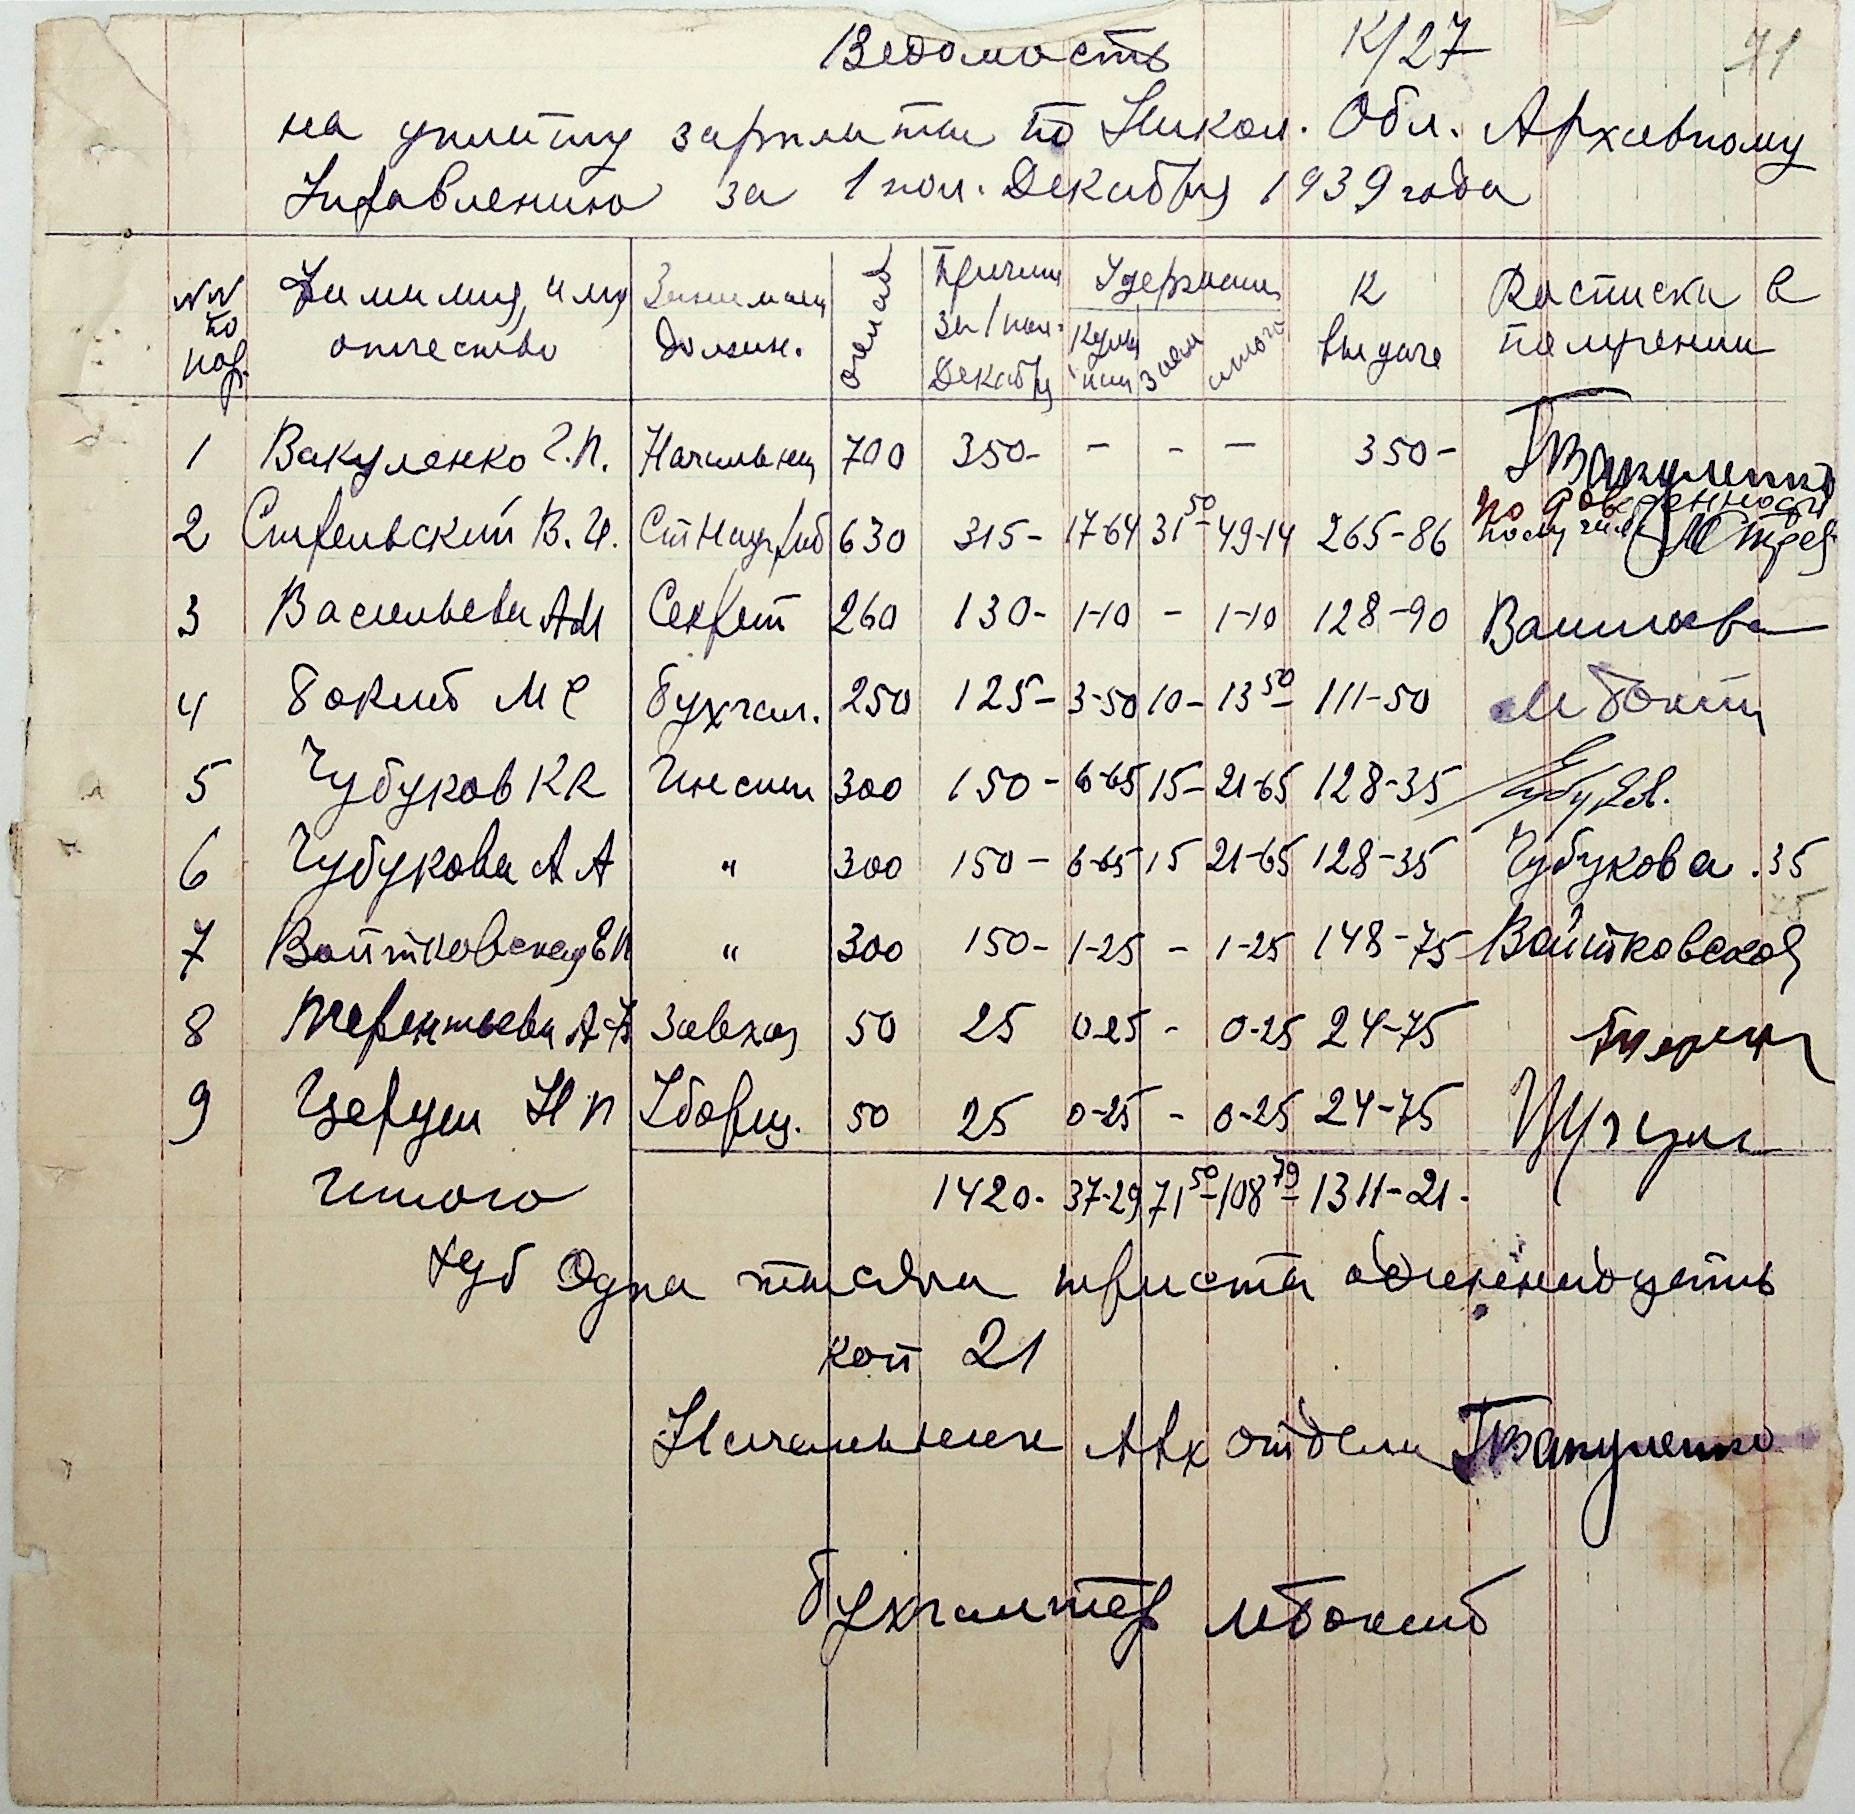 Ведомость К/27 71
на уплату зарплаты по Никол. Обл. Архивному
Управлению за 1 пол. Декабря 1939 года
№№ по пор. Фамилия, имя отчество Занимаем должн. оклад Причит за 1 пол. Декабря Удержание заем итого К выдаче Расписка в получении
1 Вакуленко Г.П. Начальник 700 350- - - - 350- ГВакуленко
2 Стрельский В.И. Ст Науч раб 630 315- 17-64 31 50 49-14 265-86 По доверенности получила
3 Васильева АМ Секрет 260 130- 1-10 - 1-10 128-90 Васильева
4 Бокит М С Бухгал. 250 125- 3-50 10- 13 50 111-50
5 Чубуков К К Инспек 300 150- 6-65 15- 21-65 128-35
6 Чубукова А А " 300 150- 6-65 15 21-65 128-35 Чубукова .35
7 Войтковская Е И " 300 150- 1-25 - 1-25 148-75 Войтковская
8 Терентьева А Завхоз 50 25 0-25 - 0-25 24-75
9 Н П Уборщ. 50 25 0-25 - 0-25 24-75
Итого 1420- 37-29 71 50 108 79 1311-21-
Руб Одна тысяча триста одиннадцать
коп 21
Начальник Арх отдела ГВакуленко
Бухгалтер МБокит